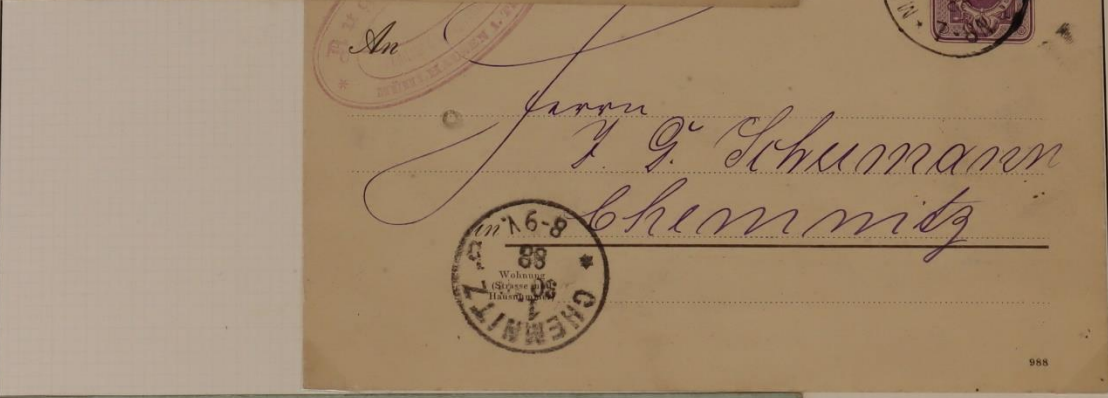 An
Herrn
J. G. Schumann
in Chemnitz
Wohnung
(Strasse und
Hausnummer)
CHEMNITZ
1
30
88
8-9 V.
7-8N
988